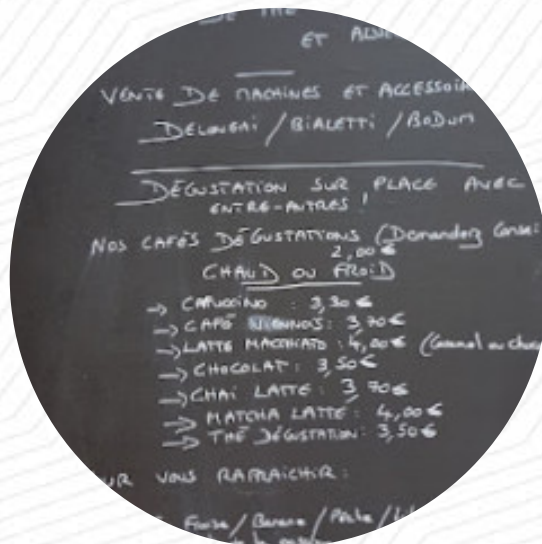 DE THÉ
ET ALU
VENTE DE MACHINES ET ACCESSOI
DELONGHI / BIALETTI / BODUM
DÉGUSTATION SUR PLACE AVEC
ENTRE-AUTRES !
NOS CAFÉS DÉGUSTATIONS (Demandez Conse
2,00€
CHAUD OU FROID
→ CAPUCCINO : 3,30€
→ CAFÉ VIENNOIS : 3,70€
→ LATTE MACCHIATO : 4,00€ (Caramel ou choc
→ CHOCOLAT : 3,50€
→ CHAI LATTE : 3,70€
→ MATCHA LATTE : 4,00€
→ THÉ DÉGUSTATION : 3,50€
UR VOUS RAFRAICHIR :
Fraise / Banane / Pêche /